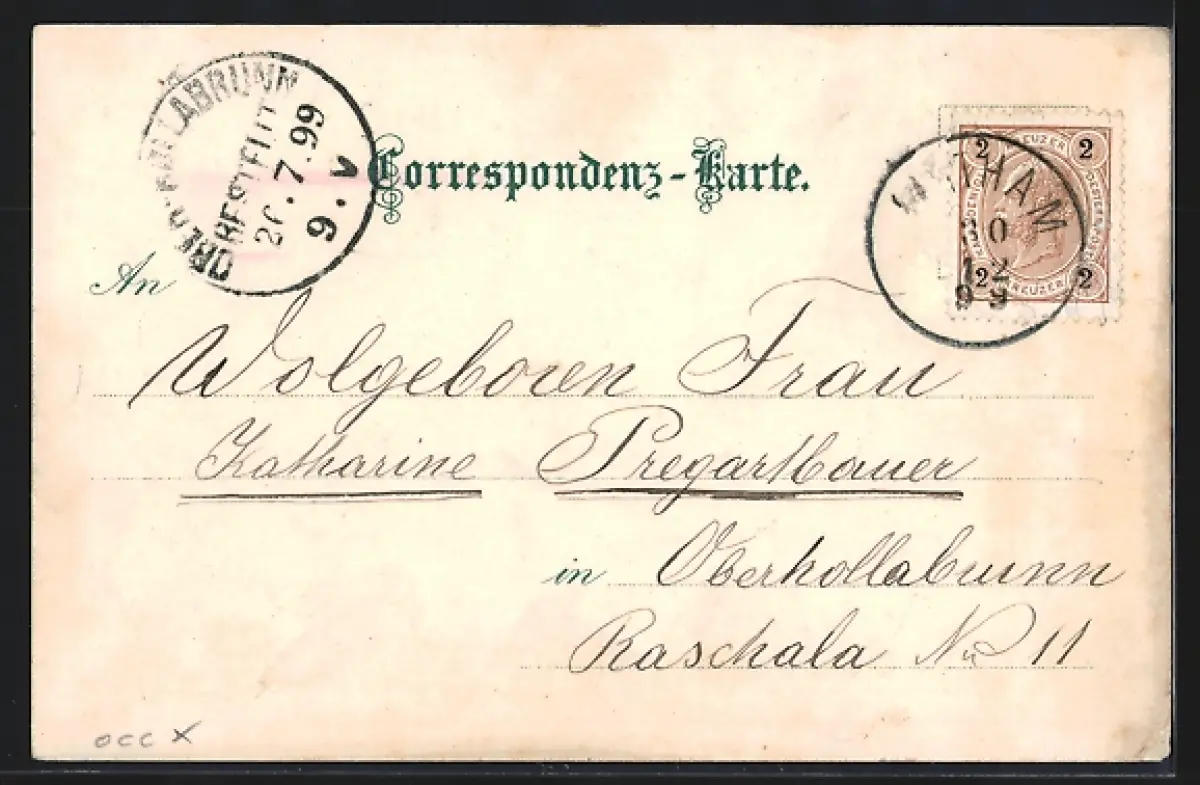 OBERHOLLABRUNN
BESTELLT
20.7.99
9.V
Correspondenz-Karte.
HAM
2 KREUZER 2
2 KREUZER 2
99
An
Wolgeboren Frau
Katharine Pregartbauer
in Oberhollabrunn
Raschala Nr 11
occ x